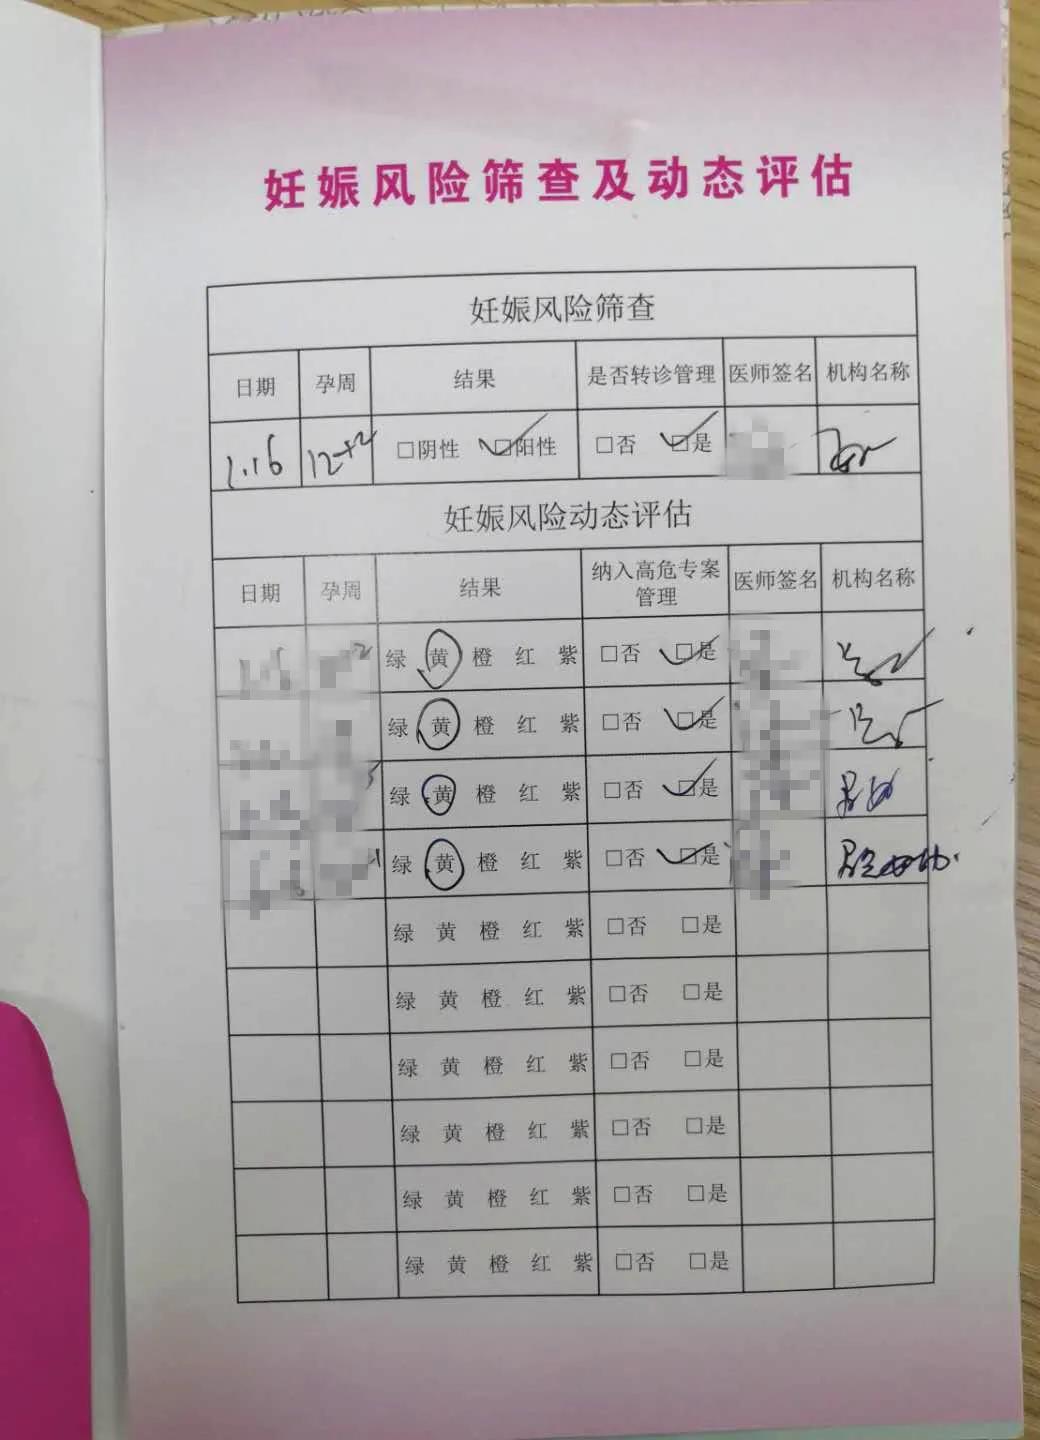 妊娠风险筛查及动态评估
妊娠风险筛查
日期 孕周 结果 是否转诊管理 医师签名 机构名称
1.16 12+2 □阴性 ☑阳性 □否 ☑是
妊娠风险动态评估
日期 孕周 结果 纳入高危专案管理 医师签名 机构名称
绿 黄 橙 红 紫 □否 ☑是
绿 黄 橙 红 紫 □否 ☑是
绿 黄 橙 红 紫 □否 ☑是
绿 黄 橙 红 紫 □否 ☑是
绿 黄 橙 红 紫 □否 □是
绿 黄 橙 红 紫 □否 □是
绿 黄 橙 红 紫 □否 □是
绿 黄 橙 红 紫 □否 □是
绿 黄 橙 红 紫 □否 □是
绿 黄 橙 红 紫 □否 □是